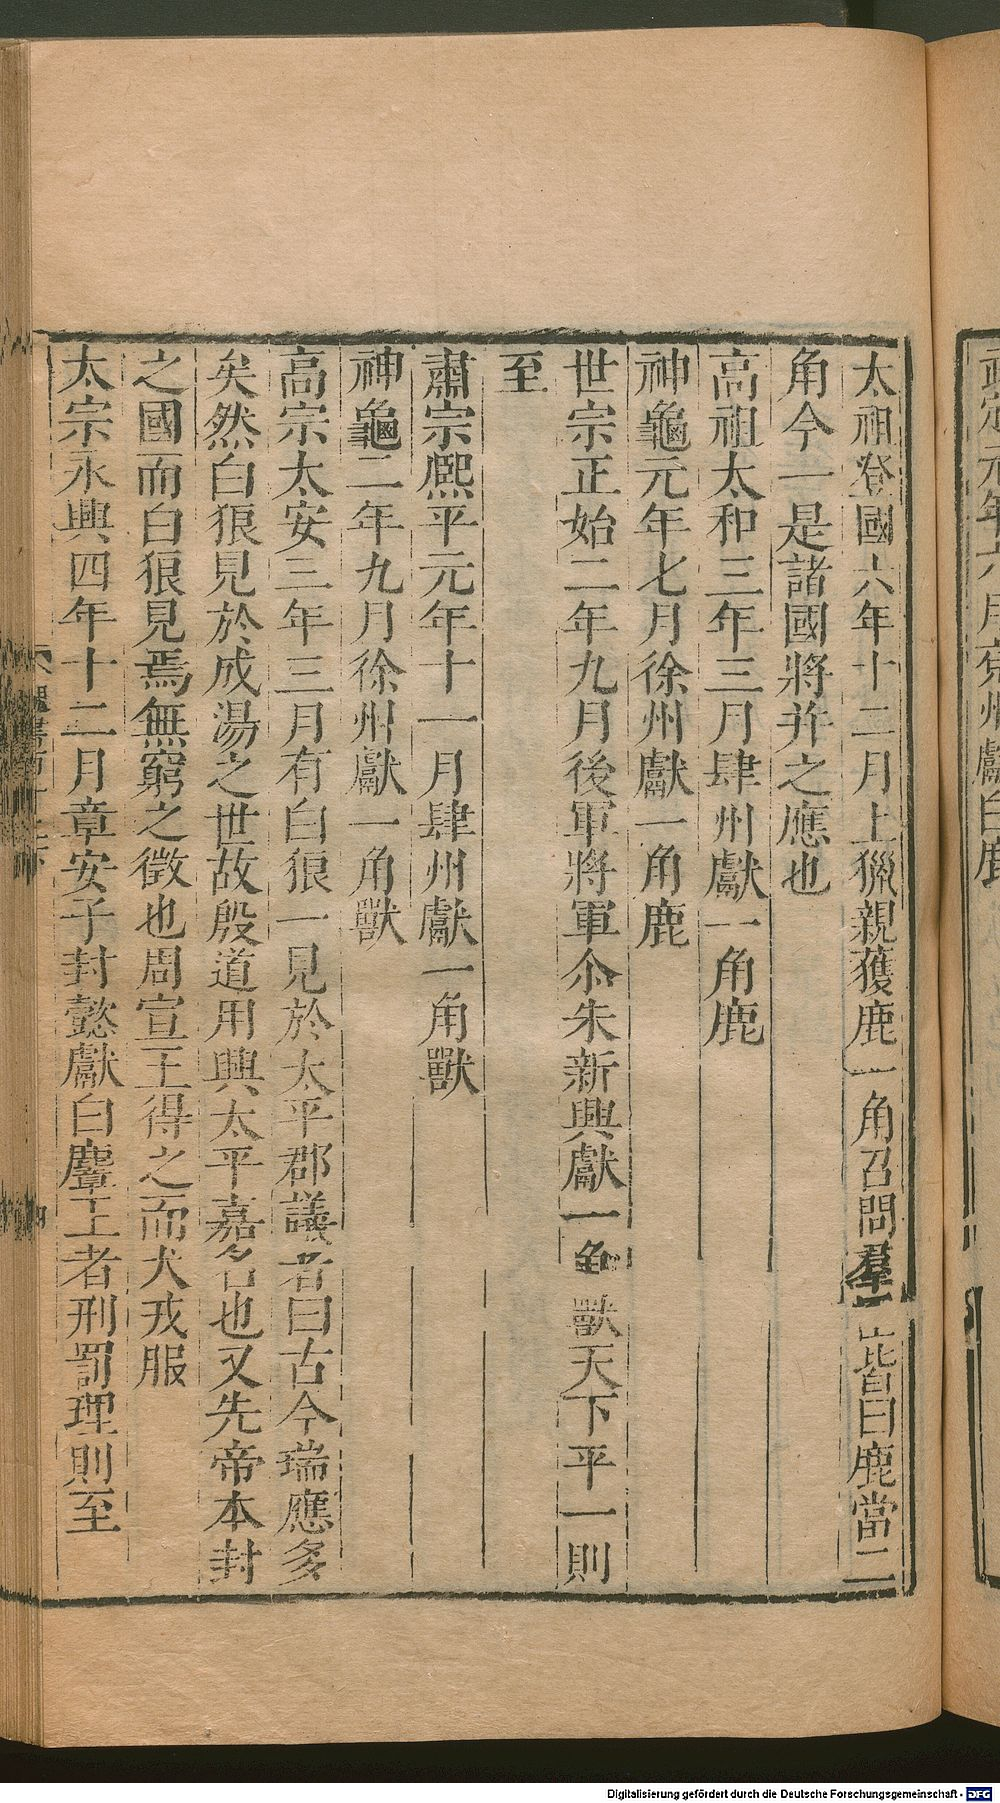 太祖登國六年十二月上獵親獲鹿一角召問羣皆曰鹿當二
角今一是諸國將并之應也
高祖太和三年三月肆州獻一角鹿
神龜元年七月徐州獻一角鹿
世宗正始二年九月後軍將軍尒朱新興獻一角獸天下平一則
至
肅宗熙平元年十一月肆州獻一角獸
神龜二年九月徐州獻一角獸
高宗太安三年三月有白狼一見於太平郡議者曰古今瑞應多
矣然白狼見於成湯之世故殷道用興太平嘉名也又先帝本封
之國而白狼見焉無窮之徵也周宣王得之而犬戎服
太宗永興四年十二月章安子封懿獻白麞王者刑罰理則至
Digitalisierung gefördert durch die Deutsche Forschungsgemeinschaft - DFG